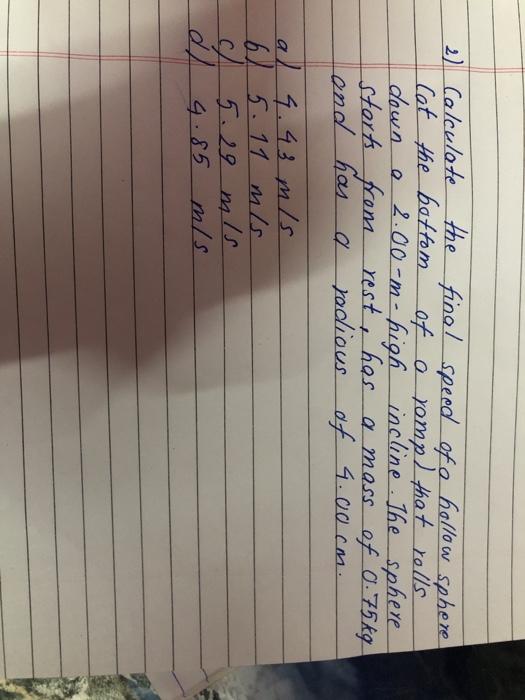 2) Calculate the final speed of a hollow sphere
(at the bottom of a ramp) that rolls
down a 2.00-m-high incline. The sphere
starts from rest, has a mass of 0.75kg
and has a radious of 4.00 cm.
a) 4.43 m/s
b) 5.11 m/s
c) 5.29 m/s
d) 4.85 m/s